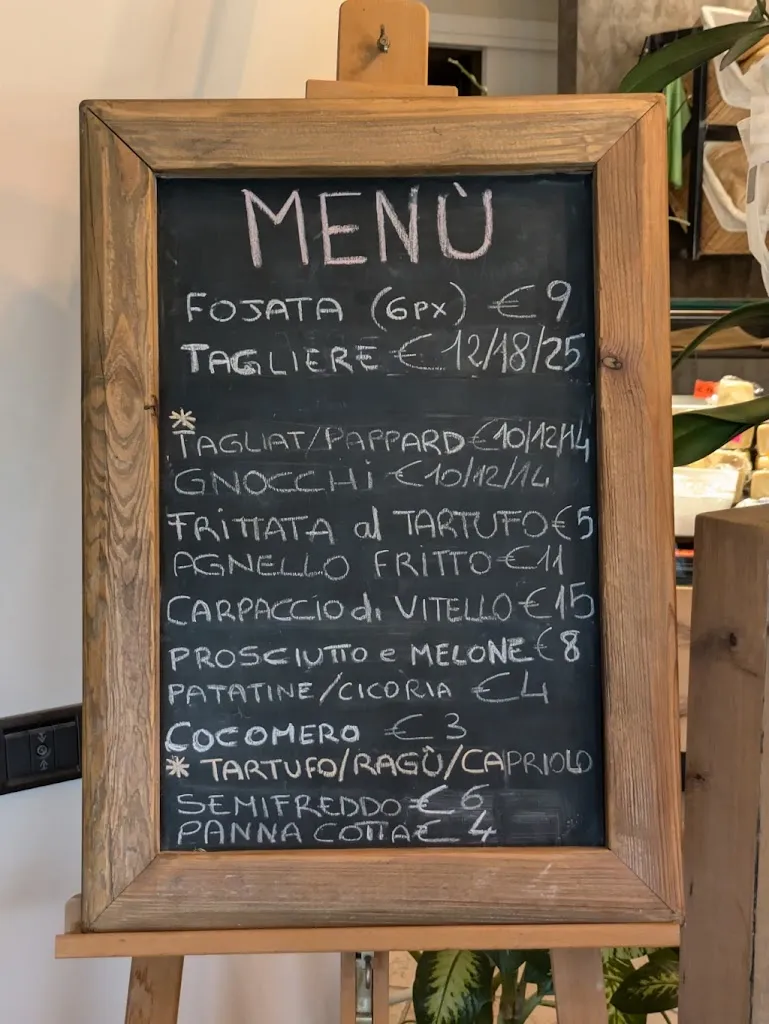 MENÙ
FOJATA (6PX) € 9
TAGLIERE € 12/18/25
*
TAGLIAT/PAPPARD €10/12/14
GNOCCHi €10/12/14
FRITTATA al TARTUFO €5
AGNELLO FRITTO €11
CARPACCIO di VITELLO €15
PROSCIUTTO e MELONE € 8
PATATINE/CICORIA €4
COCOMERO € 3
* TARTUFO/RAGÙ/CAPRIOLO
SEMIFREDDO € 6
PANNA COTTA € 4